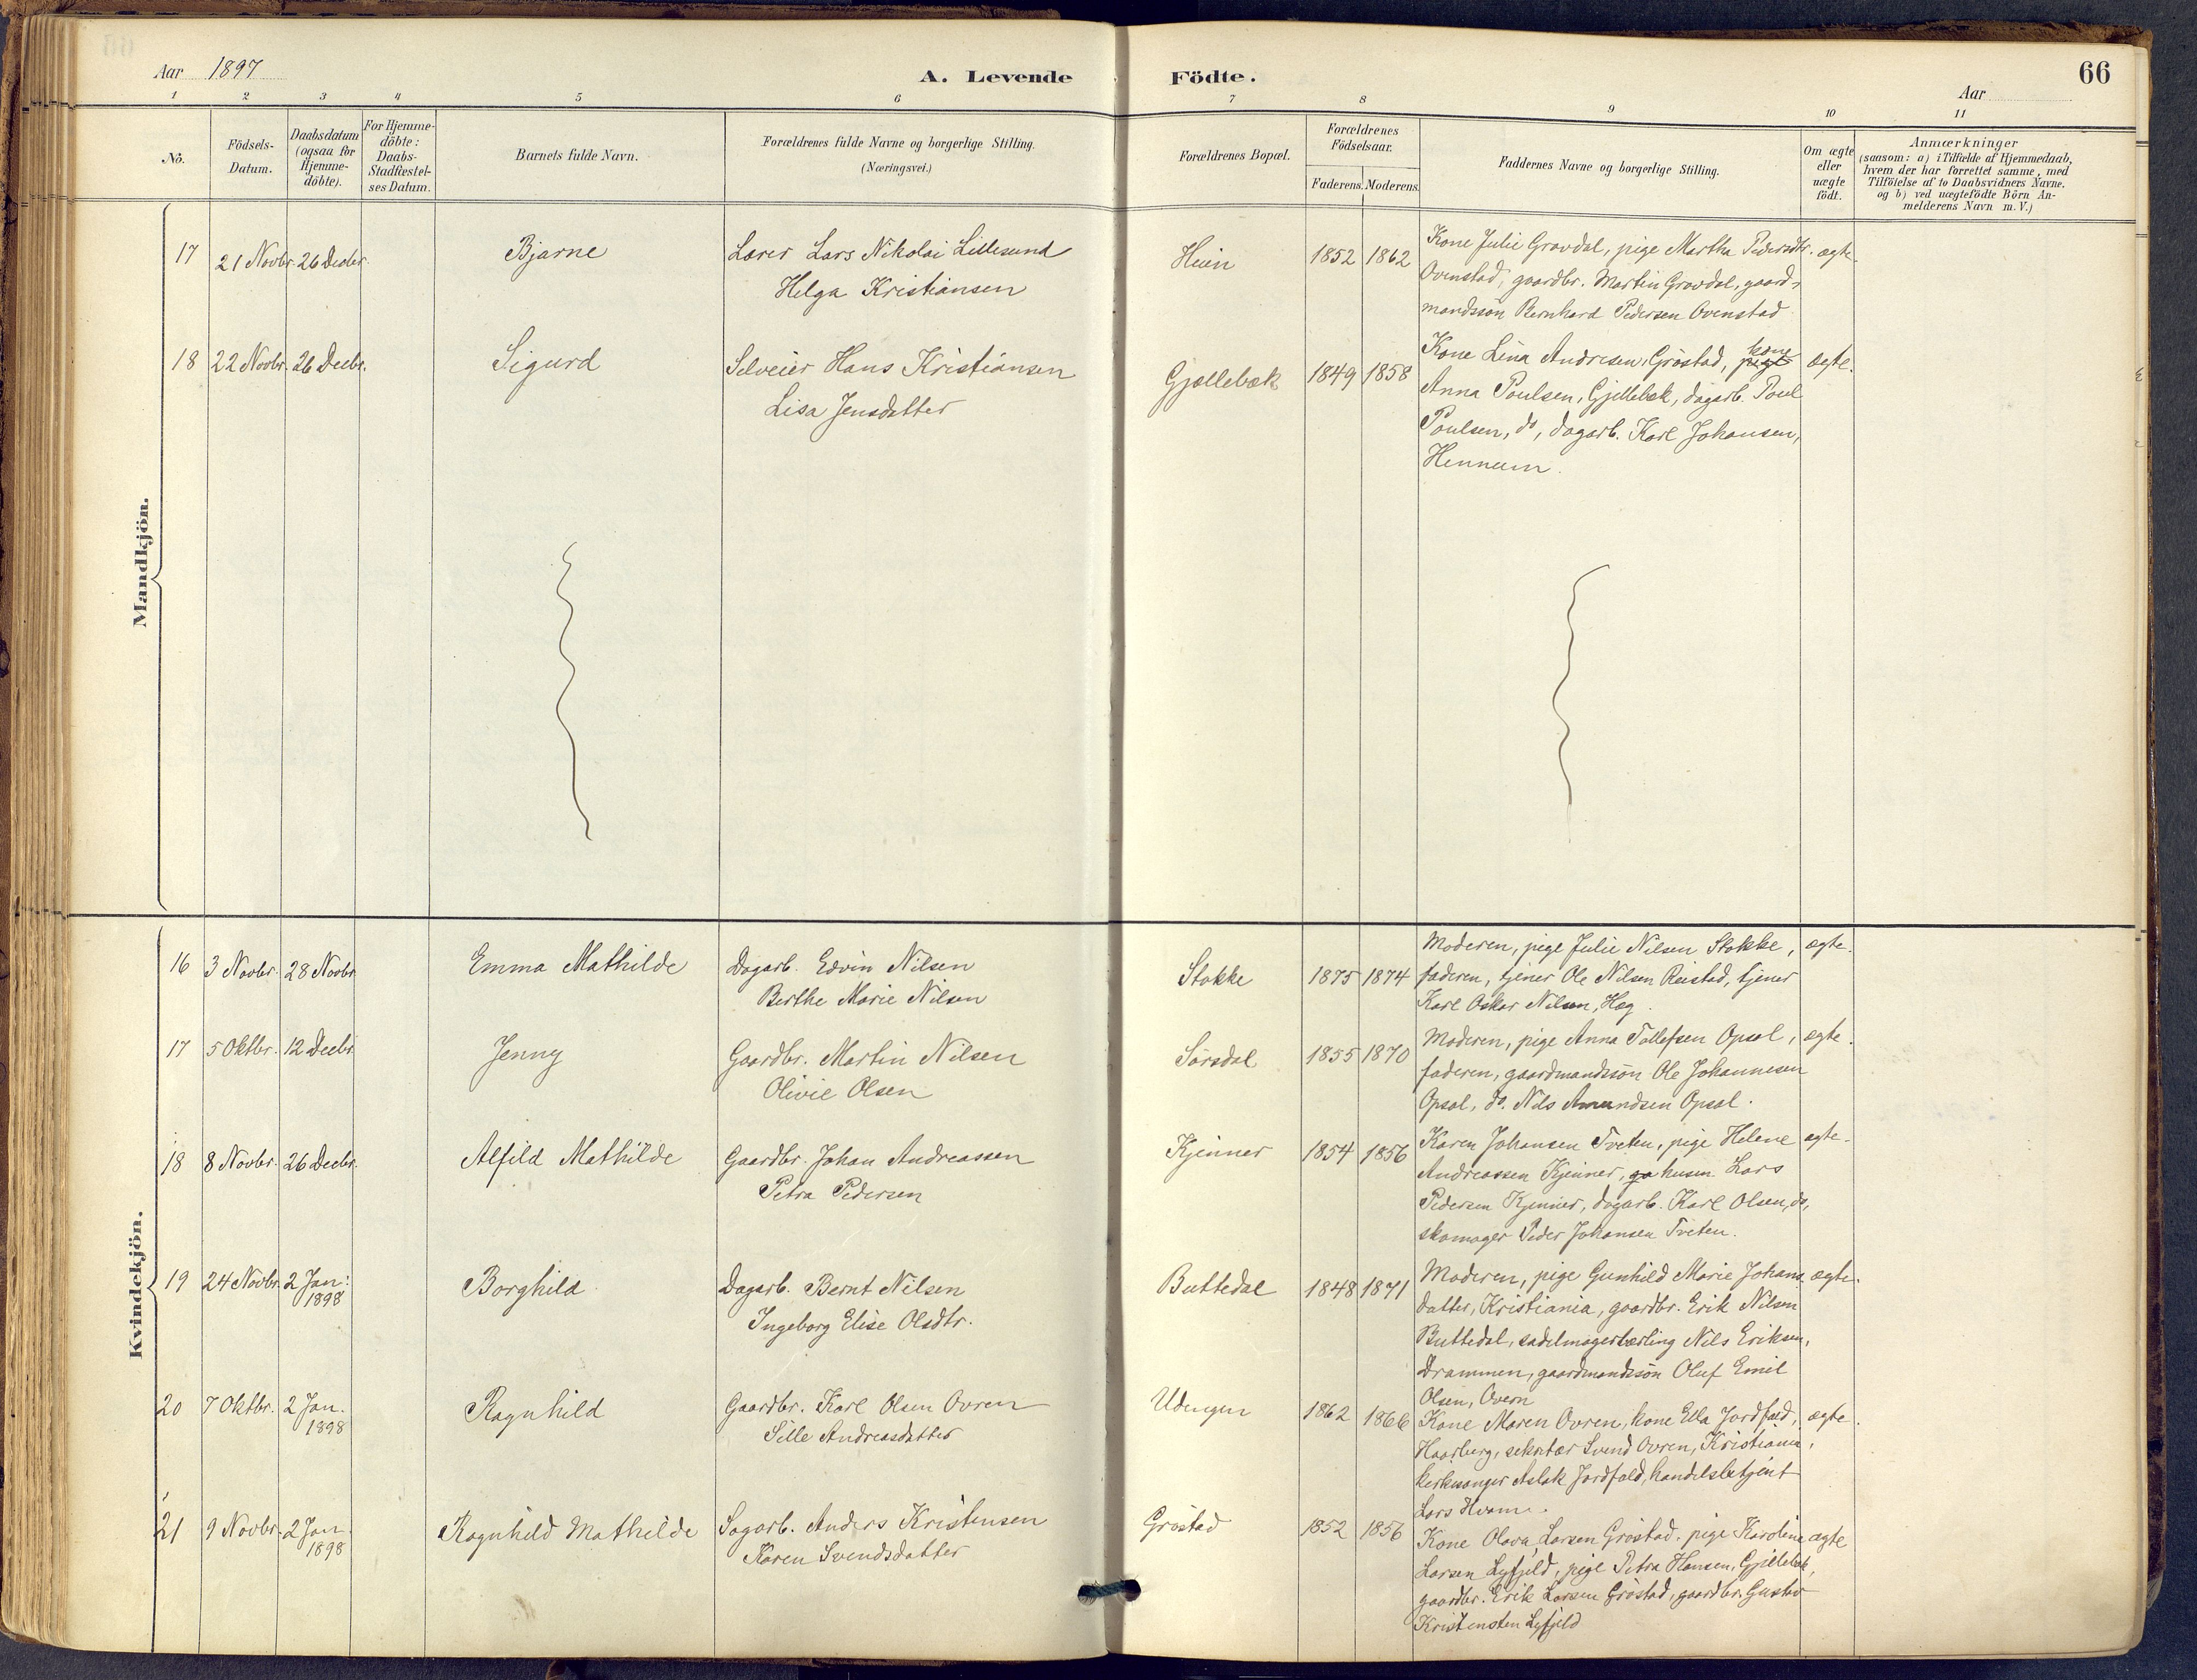 Aar 1897
A. Levende Födte.
66
Aar
1 2 3 4 5 6 7 8 9 10 11
Nö.
Födsels-
Datum.
Daabsdatum
(ogsaa for
Hjemme-
döbte).
For Hjemme-
döbte:
Daabs-
Stadfæstel-
ses Datum.
Barnets fulde Navn.
Forældrenes fulde Navne og borgerlige Stilling.
(Næringsvei.)
Forældrenes Bopæl.
Forældrenes
Födselsaar.
Faderens. Moderens.
Faddernes Navne og borgerlige Stilling.
Om ægte
eller
uægte
födt.
Anmærkninger
(saasom: a) i Tilfælde af Hjemmedaab,
hvem der har forrettet samme, med
Tilföielse af to Daabsvidners Navne.
og b) ved uægtefödte Börn An-
melderens Navn m.V.)
Mandkjön.
17 21 Novbr. 26 Decbr. Bjarne
Lærer Lars Nikolai Lillesund
Helga Kristiansen
Heien 1852 1862
Kone Julie Gravdal, pige Martha Pedersdtr. ægte.
Ovenstad, gaardbr. Martin Gravdal, gaard-
mandssøn Bernhard Pedersen Ovenstad
18 22 Novbr. 26 Decbr. Sigurd
Selveier Hans Kristiansen
Lisa Jensdatter
Gjellebæk 1849 1858
kone
Kone Lina Andresen, Gröstad, pige ægte.
Anna Poulsen, Gjellebæk, dagarb. Poul
Poulsen, do, dagarb. Karl Johansen,
Hennum.
Kvindekjön.
16 3 Novbr. 28 Novbr. Emma Mathilde
Dagarb. Edvin Nilsen
Berthe Marie Nilsen
Stokke 1875 1874
Moderen, pige Julie Nilsen Stokke, ægte.
faderen, tjener Ole Nilsen Reistad, tjener
Karl Oskar Nilsen, Hæg.
17 5 Oktbr. 12 Decbr. Jenny
Gaardbr. Martin Nilsen
Olivie Olsen
Sørsdal 1855 1870
Moderen, pige Anna Tollefsen Opsal, ægte.
faderen, gaardmandssøn Ole Johannesen
Opsal, do. Nils Amundsen Opsal.
18 8 Novbr. 26 Decbr. Alfild Mathilde
Gaardbr. Johan Andreassen
Petra Pedersen
Kjenner 1854 1856
Karen Johansen Tveten, pige Helene ægte.
Andreassen Kjenner, husm. Lars
Pedersen Kjenner, dagarb. Karl Olsen, do,
skomager Peder Johansen Tveten.
19 24 Novbr. 2 Jan: 1898 Borghild
Dagarb. Bernt Nilsen
Ingeborg Elise Olsdtr.
Buttedal 1848 1871
Moderen, pige Gunhild Marie Johans ægte.
datter, Kristiania, gaardbr. Erik Nilsen
Buttedal, sadelmagerlærling Nils Eriksen,
Drammen, gaardmandssøn Oluf Emil
Olsen, Overn
20 7 Oktbr. 2 Jan. 1898 Ragnhild
Gaardbr. Karl Olsen Ovren
Sille Andreasdatter
Udengen 1862 1866
Kone Maren Ovren, kone Ella Jordfald, ægte.
Haarberg, sekretær Svend Ovren, Kristiania,
kirkesanger Aslak Jordfald, handelsbetjent
Lars Hvam.
21 9 Novbr. 2 Jan. 1898 Ragnhild Mathilde
Sagarb. Anders Kristensen
Karen Svendsdatter
Gröstad 1852 1856
Kone Olava Larsen Gröstad. pige Karoline ægte
Larsen Lyfjeld, pige Petra Hansen, Gjellebæk,
gaardbr. Erik Larsen Gröstad, gaardbr. Gustav
Kristensen Lyfjeld